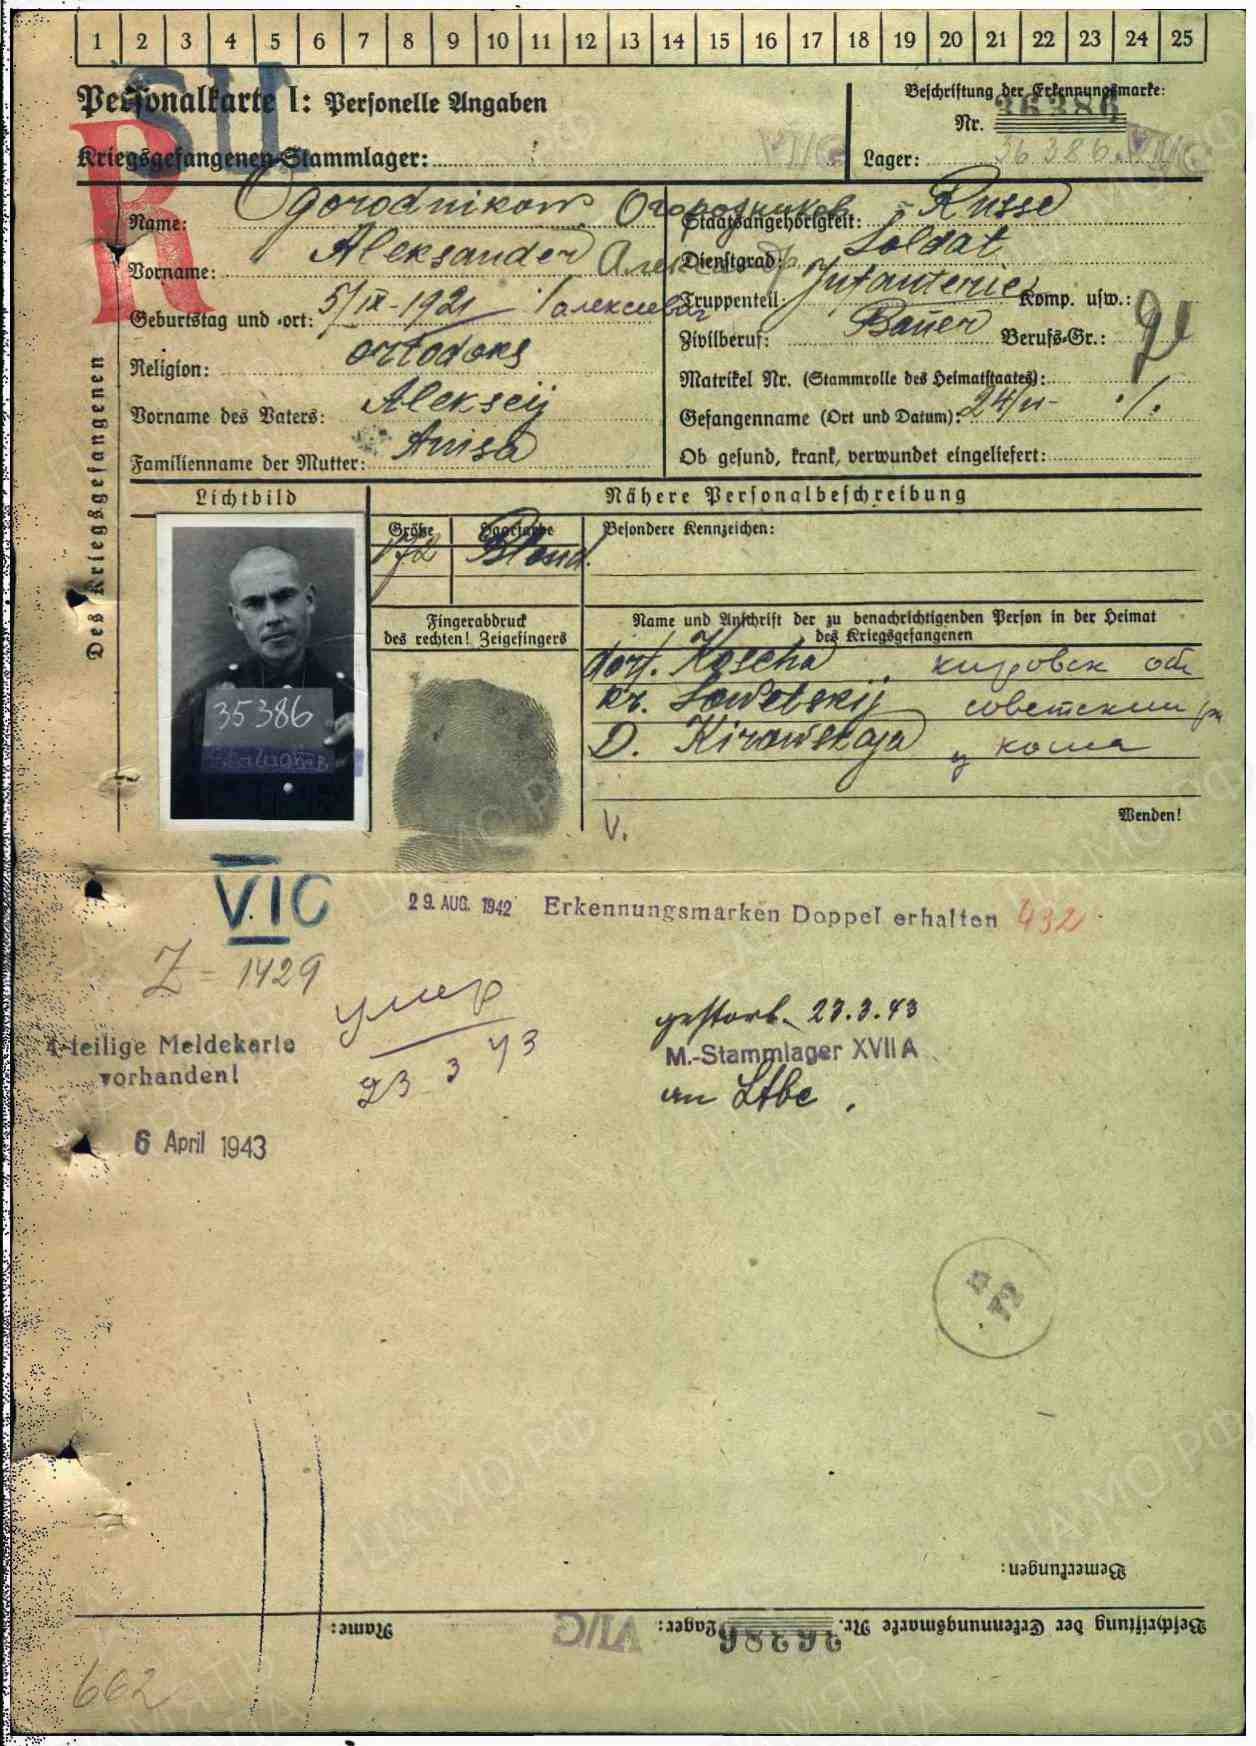 1 2 3 4 5 6 7 8 9 10 11 12 13 14 15 16 17 18 19 20 21 22 23 24 25
SU
Personalkarte I: Personelle Angaben
Beschriftung der Erkennungsmarke:
Nr. 36386
Kriegsgefangenen-Stammlager: VI/G
Lager: 36386. VI/G
R
Des Kriegsgefangenen
Name: Ogorodnikow Огородников
Vorname: Aleksander Александр
Geburtstag und -ort: 5/IX-1921 Алексиевич
Religion: ortodoks
Vorname des Vaters: Alekseij
Familienname der Mutter: Anisa
Staatsangehörigkeit: Russe
Dienstgrad: Soldat
Truppenteil: Infanterie Komp. usw.:
Zivilberuf: Bauer Berufs-Gr.:
Matrikel Nr. (Stammrolle des Heimatstaates):
Gefangennahme (Ort und Datum):
Ob gesund, krank, verwundet eingeliefert:
Lichtbild
Nähere Personalbeschreibung
Größe
172
Haarfarbe
Blond.
Besondere Kennzeichen:
35386
Fingerabdruck
des rechten! Zeigefingers
Name und Anschrift der zu benachrichtigenden Person in der Heimat
des Kriegsgefangenen
dorf. Koscha кировск обл
kr. Sowetskij советский
D. Kirowskaja коша
V.
Wenden!
VIC
29. AUG. 1942 Erkennungsmarken Doppel erhalten 432
Z = 1429
умер
23 3 43
gestorb. 23.3.43
M.-Stammlager XVII A
an
4-teilige Meldekarte
vorhanden!
6 April 1943
72
Bemerkungen:
Beschriftung der Erkennungsmarke Nr. 36386 Lager: VI/G Name:
662
ЦАМО.РФ